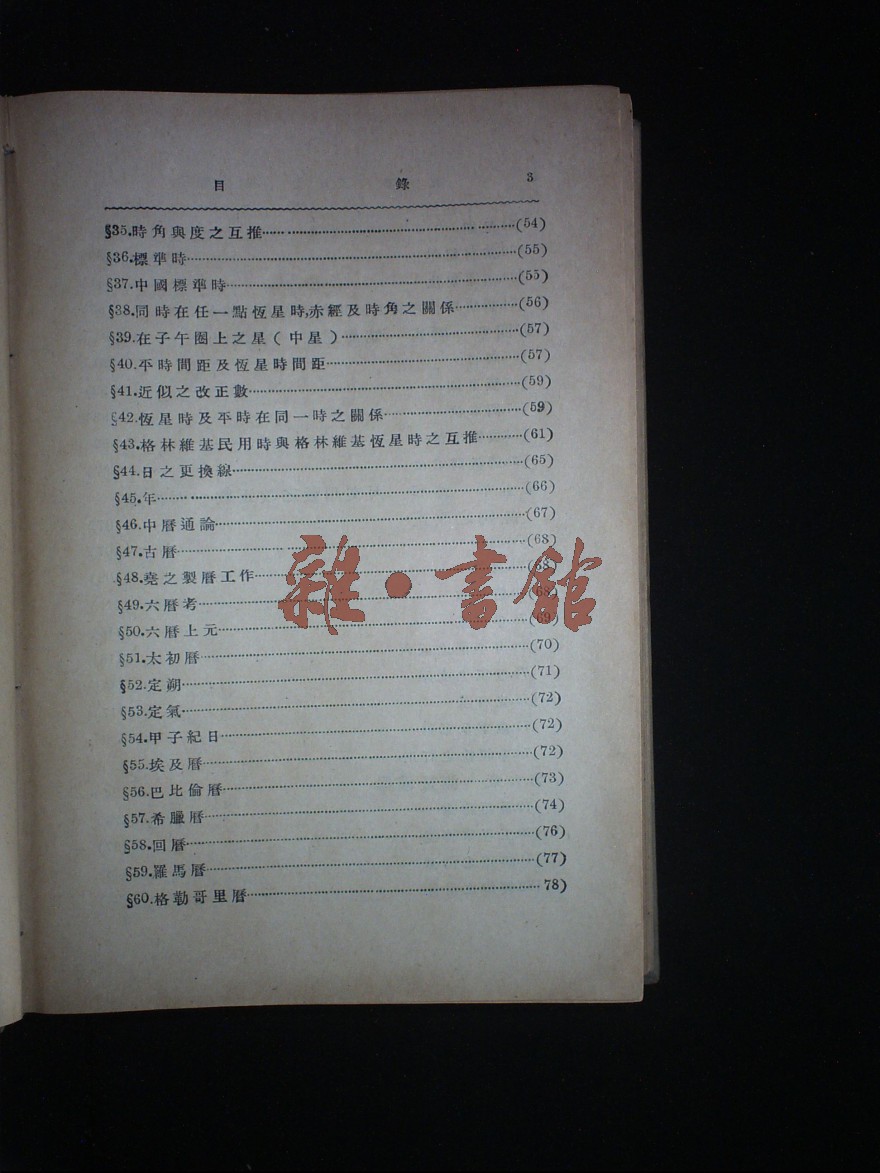 目 錄 3
§35.時角與度之互推……(54)
§36.標準時……(55)
§37.中國標準時……(55)
§38.同時在任一點恆星時,赤經及時角之關係……(56)
§39.在子午圈上之星(中星)……(57)
§40.平時間距及恆星時間距……(57)
§41.近似之改正數……(59)
§42.恆星時及平時在同一時之關係……(59)
§43.格林維基民用時與格林維基恆星時之互推……(61)
§44.日之更換線……(65)
§45.年……(66)
§46.中曆通論……(67)
§47.古曆……(68)
§48.堯之製曆工作……(68)
§49.六曆考……(68)
§50.六曆上元……(69)
§51.太初曆……(70)
§52.定朔……(71)
§53.定氣……(72)
§54.甲子紀日……(72)
§55.埃及曆……(72)
§56.巴比倫曆……(73)
§57.希臘曆……(74)
§58.回曆……(76)
§59.羅馬曆……(77)
§60.格勒哥里曆……78)
雜·書館